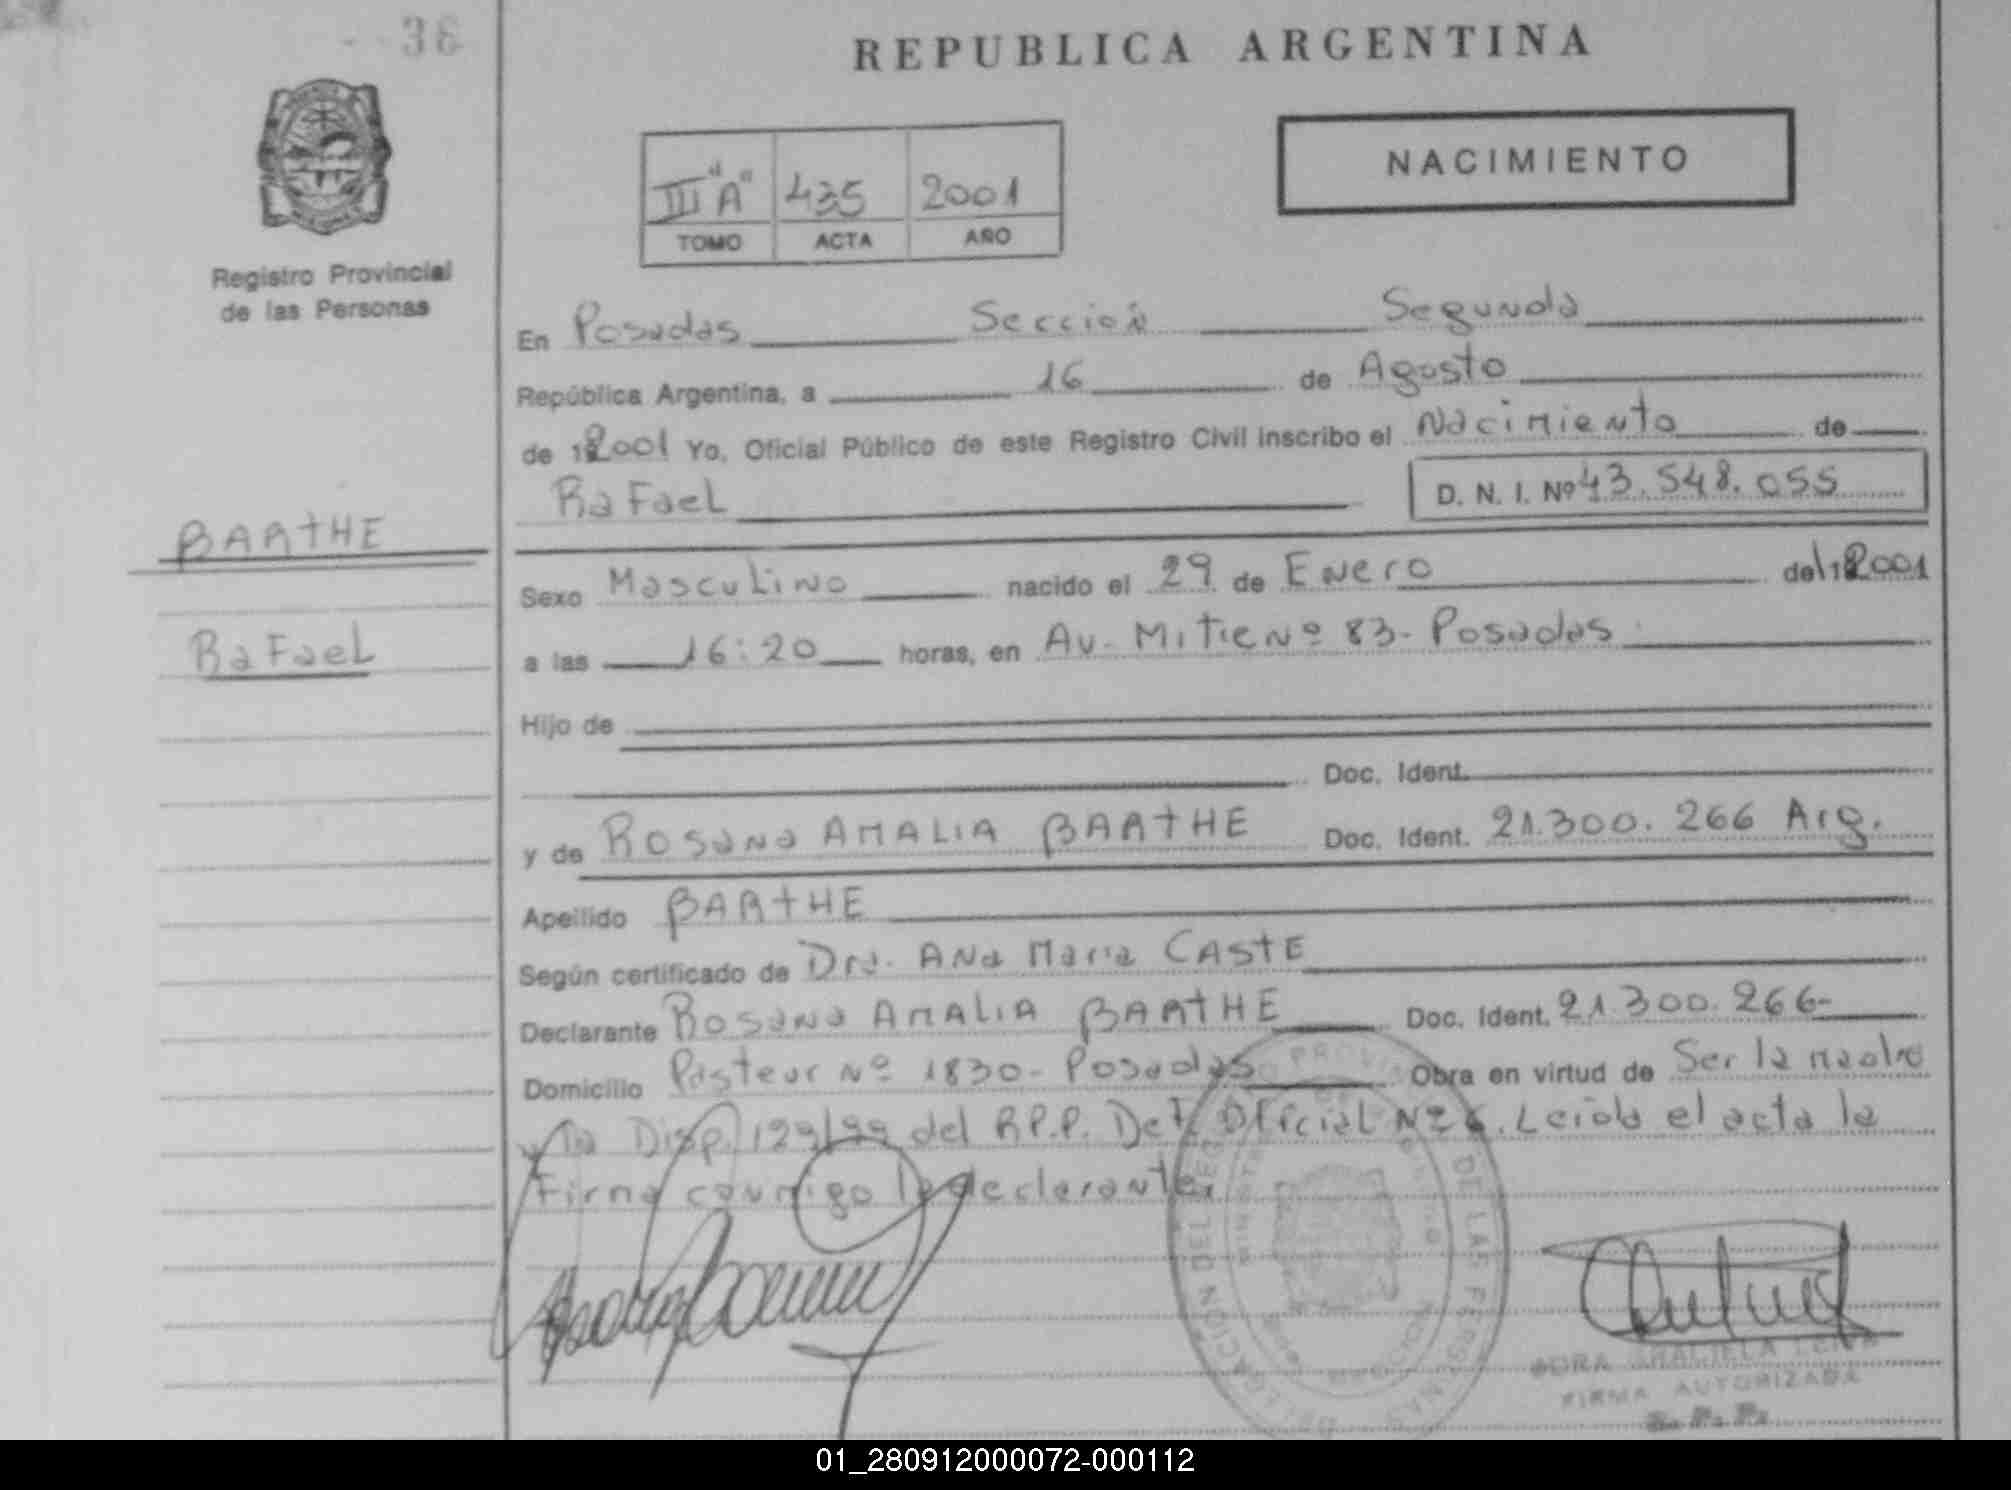 36
REPUBLICA ARGENTINA
NACIMIENTO
III "A" 435 2001
TOMO ACTA AÑO
Registro Provincial
de las Personas
En Posadas Sección Segunda
República Argentina, a 16 de Agosto
de 2001 Yo, Oficial Público de este Registro Civil inscribo el Nacimiento de
Rafael D. N. I. Nº 43.548.055
BARTHE
Sexo Masculino nacido el 29 de Enero del 2001
Rafael
a las 16:20 horas, en Av. Mitre Nº 83- Posadas
Hijo de
Doc. Ident.
y de Rosana AMALIA BARTHE Doc. Ident. 21.300.266 Arg.
Apellido BARTHE
Según certificado de Dra. Ana Maria CASTE
Declarante Rosana AMALIA BARTHE Doc. Ident. 21.300.266-
Domicilio Pasteur Nº 1830- Posadas Obra en virtud de Ser la madre
y la Disp. 129/99 del R.P.P. Det. Oficial Nº 6. Leida el acta la
Firma conmigo la declarante.
DELEGACION DEL REGISTRO PROVINCIAL DE LAS PERSONAS
FIRMA AUTORIZADA
R. P. P.
01_280912000072-000112